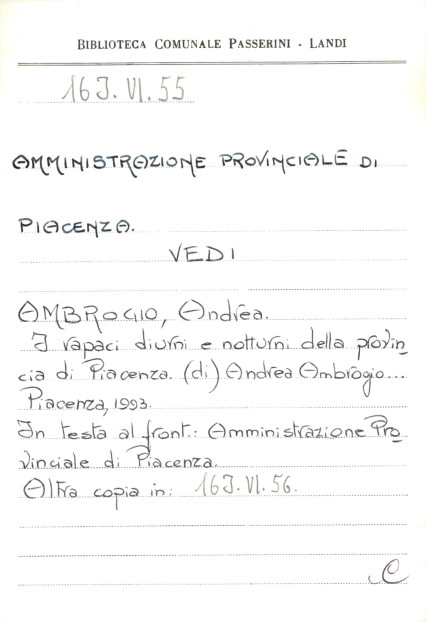 BIBLIOTECA COMUNALE PASSERINI - LANDI
16 J. VI. 55
AMMINISTRAZIONE PROVINCIALE DI
PIACENZA.
VEDI
AMBROGIO, Andrea.
I rapaci diurni e notturni della provin
cia di Piacenza. (di) Andrea Ambrogio...
Piacenza, 1993.
In testa al front.: Amministrazione Pro
vinciale di Piacenza.
Altra copia in: 16 J. VI. 56.
C